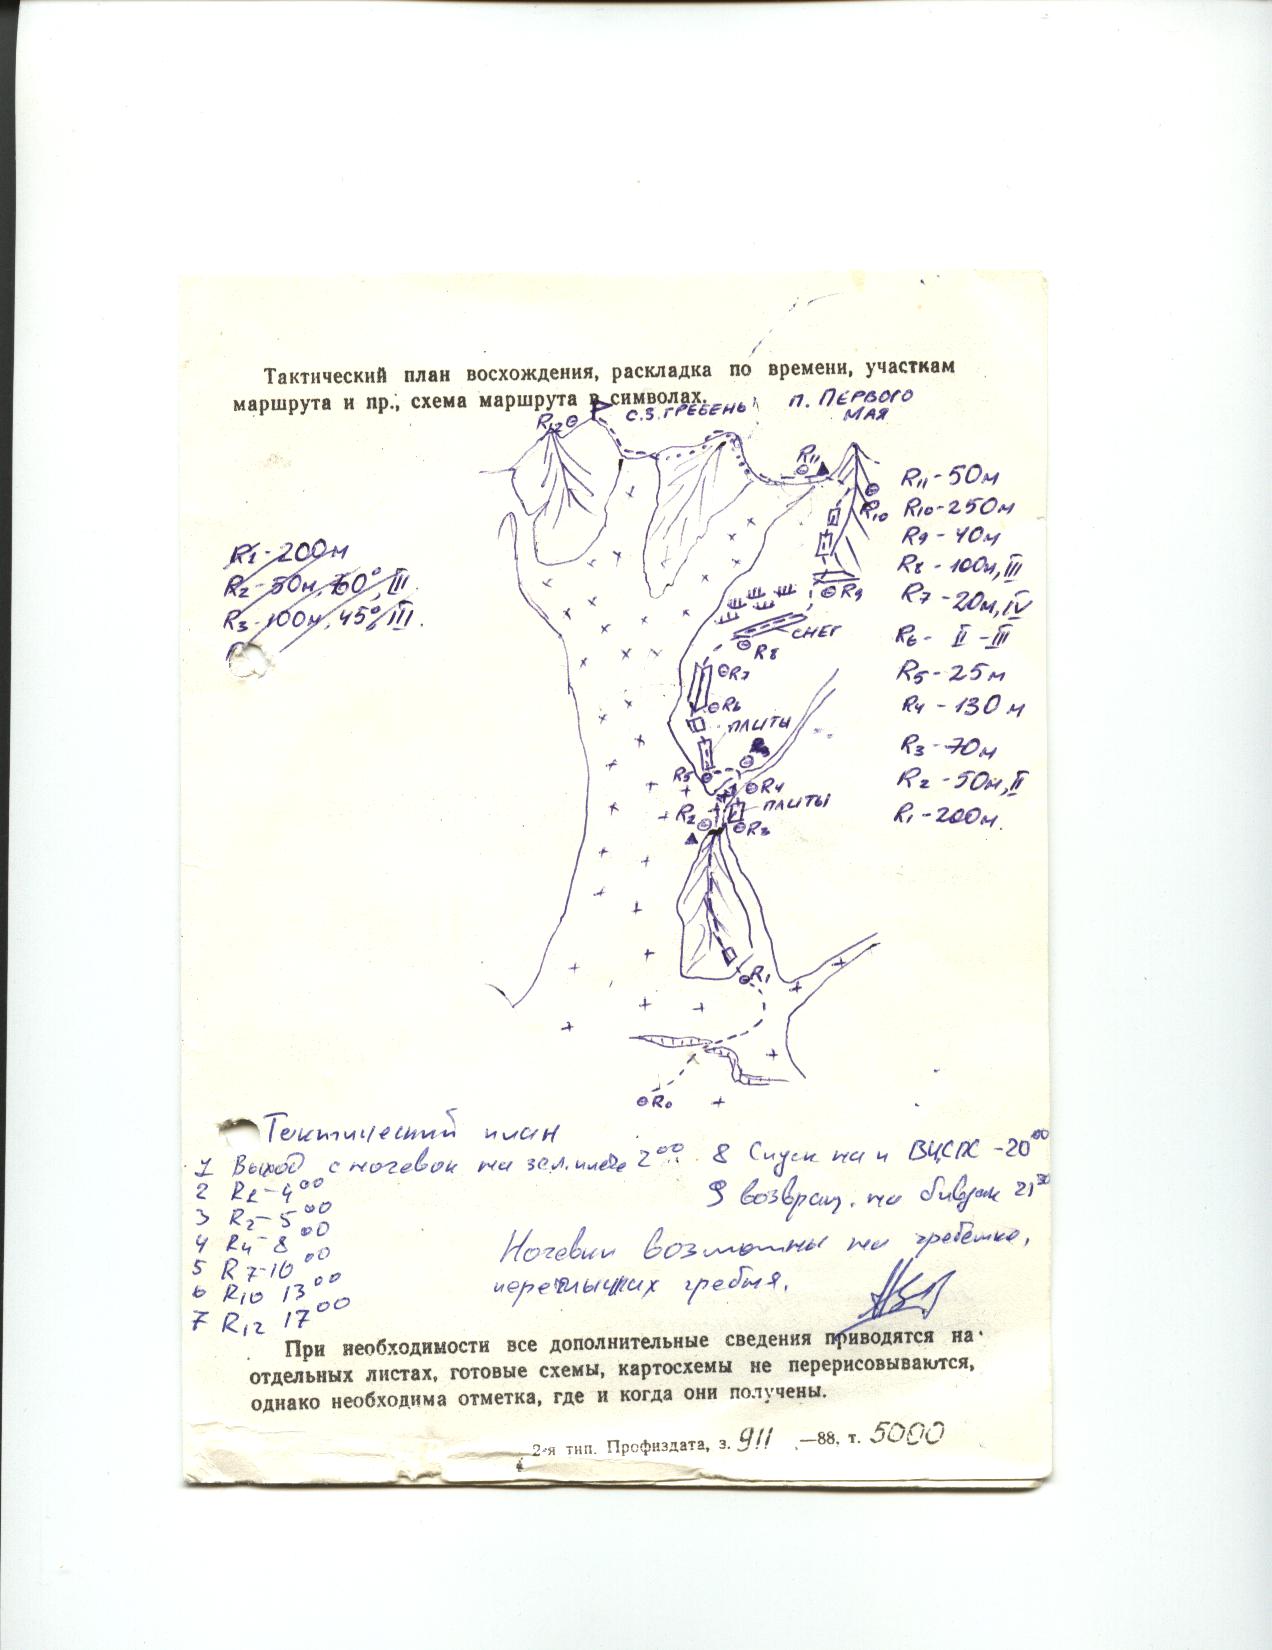 Тактический план восхождения, раскладка по времени, участкам
маршрута и пр., схема маршрута в символах.
С.З. ГРЕБЕНЬ
П. ПЕРВОГО
МАЯ
R12
R11
R10
R11 - 50м
R10 - 250м
R9 - 40м
R8 - 100м, III
R7 - 20м, IV
R6 - II - III
R5 - 25м
R4 - 130м
R3 - 70м
R2 - 50м, II
R1 - 200м.
R1 - 200м
R2 - 50м, 60°, III
R3 - 100м, 45°, III.
R9
СНЕГ
R8
R7
R6
ПЛИТЫ
R5
R4
ПЛИТЫ
R2
R3
R1
R0
Тактический план
1 Выход с ночевок на 2 00
2 R1 - 4 00
3 R2 - 5 00
4 R4 - 8 00
5 R7 - 10 00
6 R10 13 00
7 R12 17 00
8 Спуск на л ВЦСПС - 20 00
9 возвращ. на бивуак 21 30
Ночевки возможны на гребешке,
перемычках гребня.
При необходимости все дополнительные сведения приводятся на
отдельных листах, готовые схемы, картосхемы не перерисовываются,
однако необходима отметка, где и когда они получены.
2-я тип. Профиздата, з. 911 —88. т. 5000